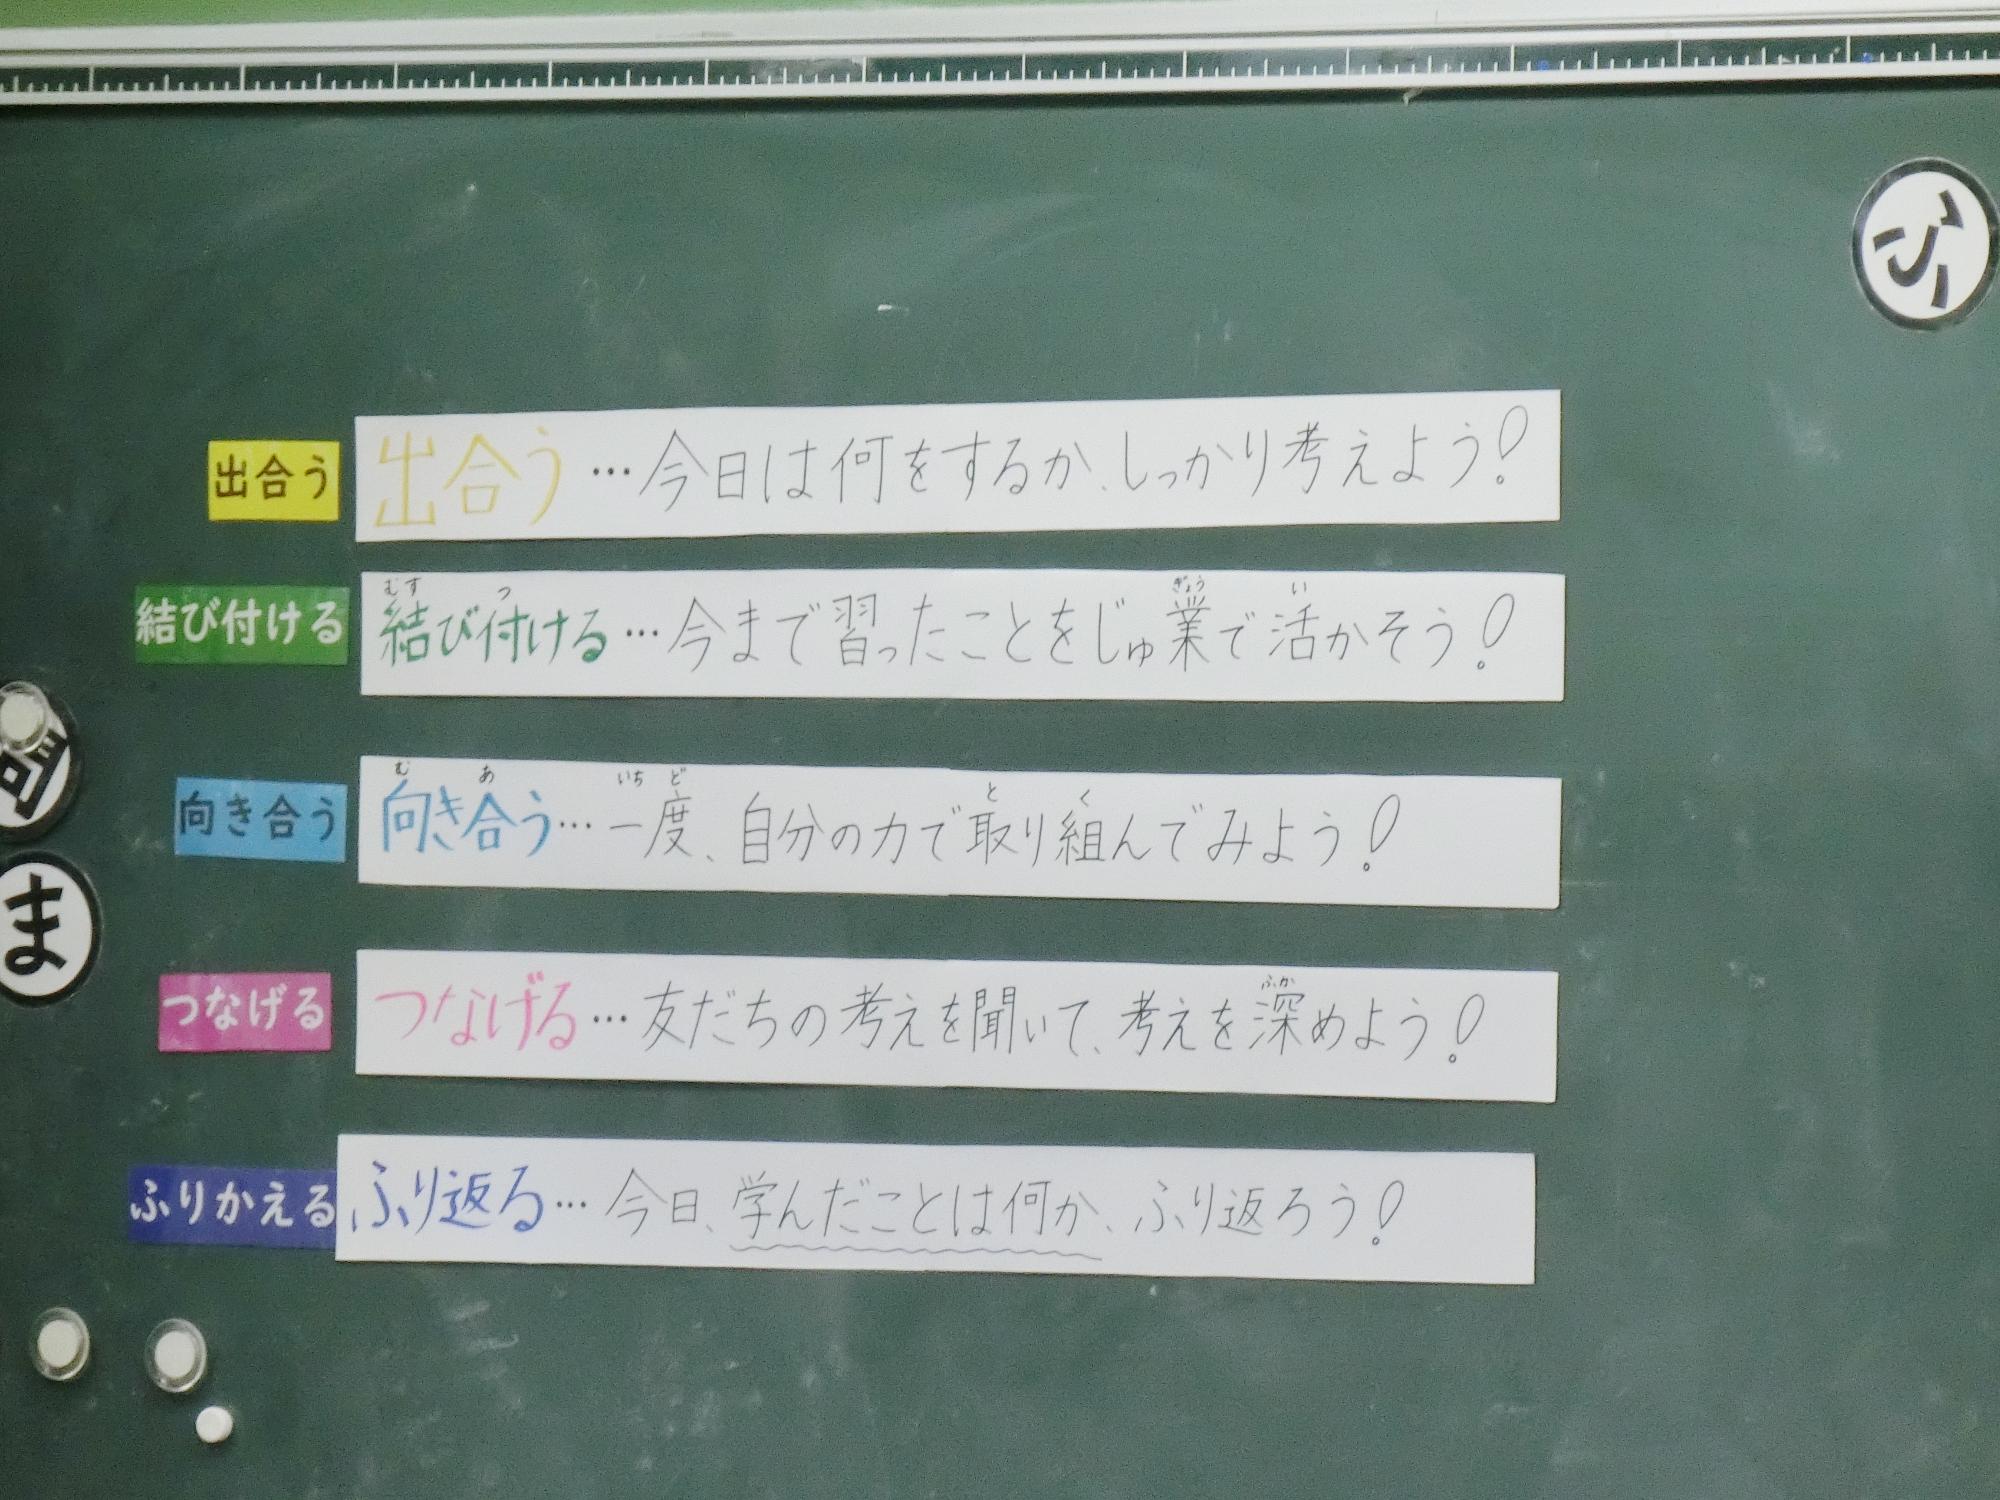 ふ
出合う 出合う…今日は何をするか、しっかり考えよう!
むす つ ぎょう い
結び付ける 結び付ける…今まで習ったことをじゅ業で活かそう!
む あ いち ど と く
向き合う 向き合う…一度、自分の力で取り組んでみよう!
ま
ふか
つなげる つなげる…友だちの考えを聞いて、考えを深めよう!
ふりかえる ふり返る…今日、学んだことは何か、ふり返ろう!